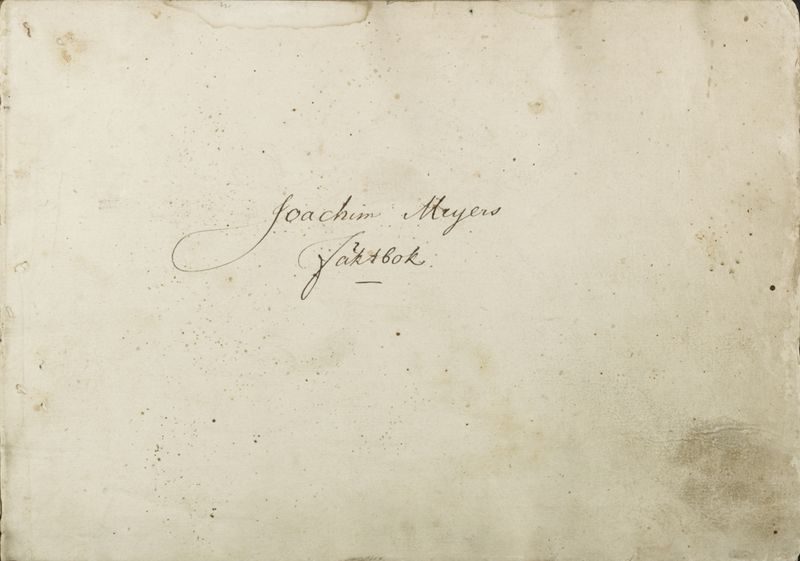 Joachim Meyers
fäktbok.